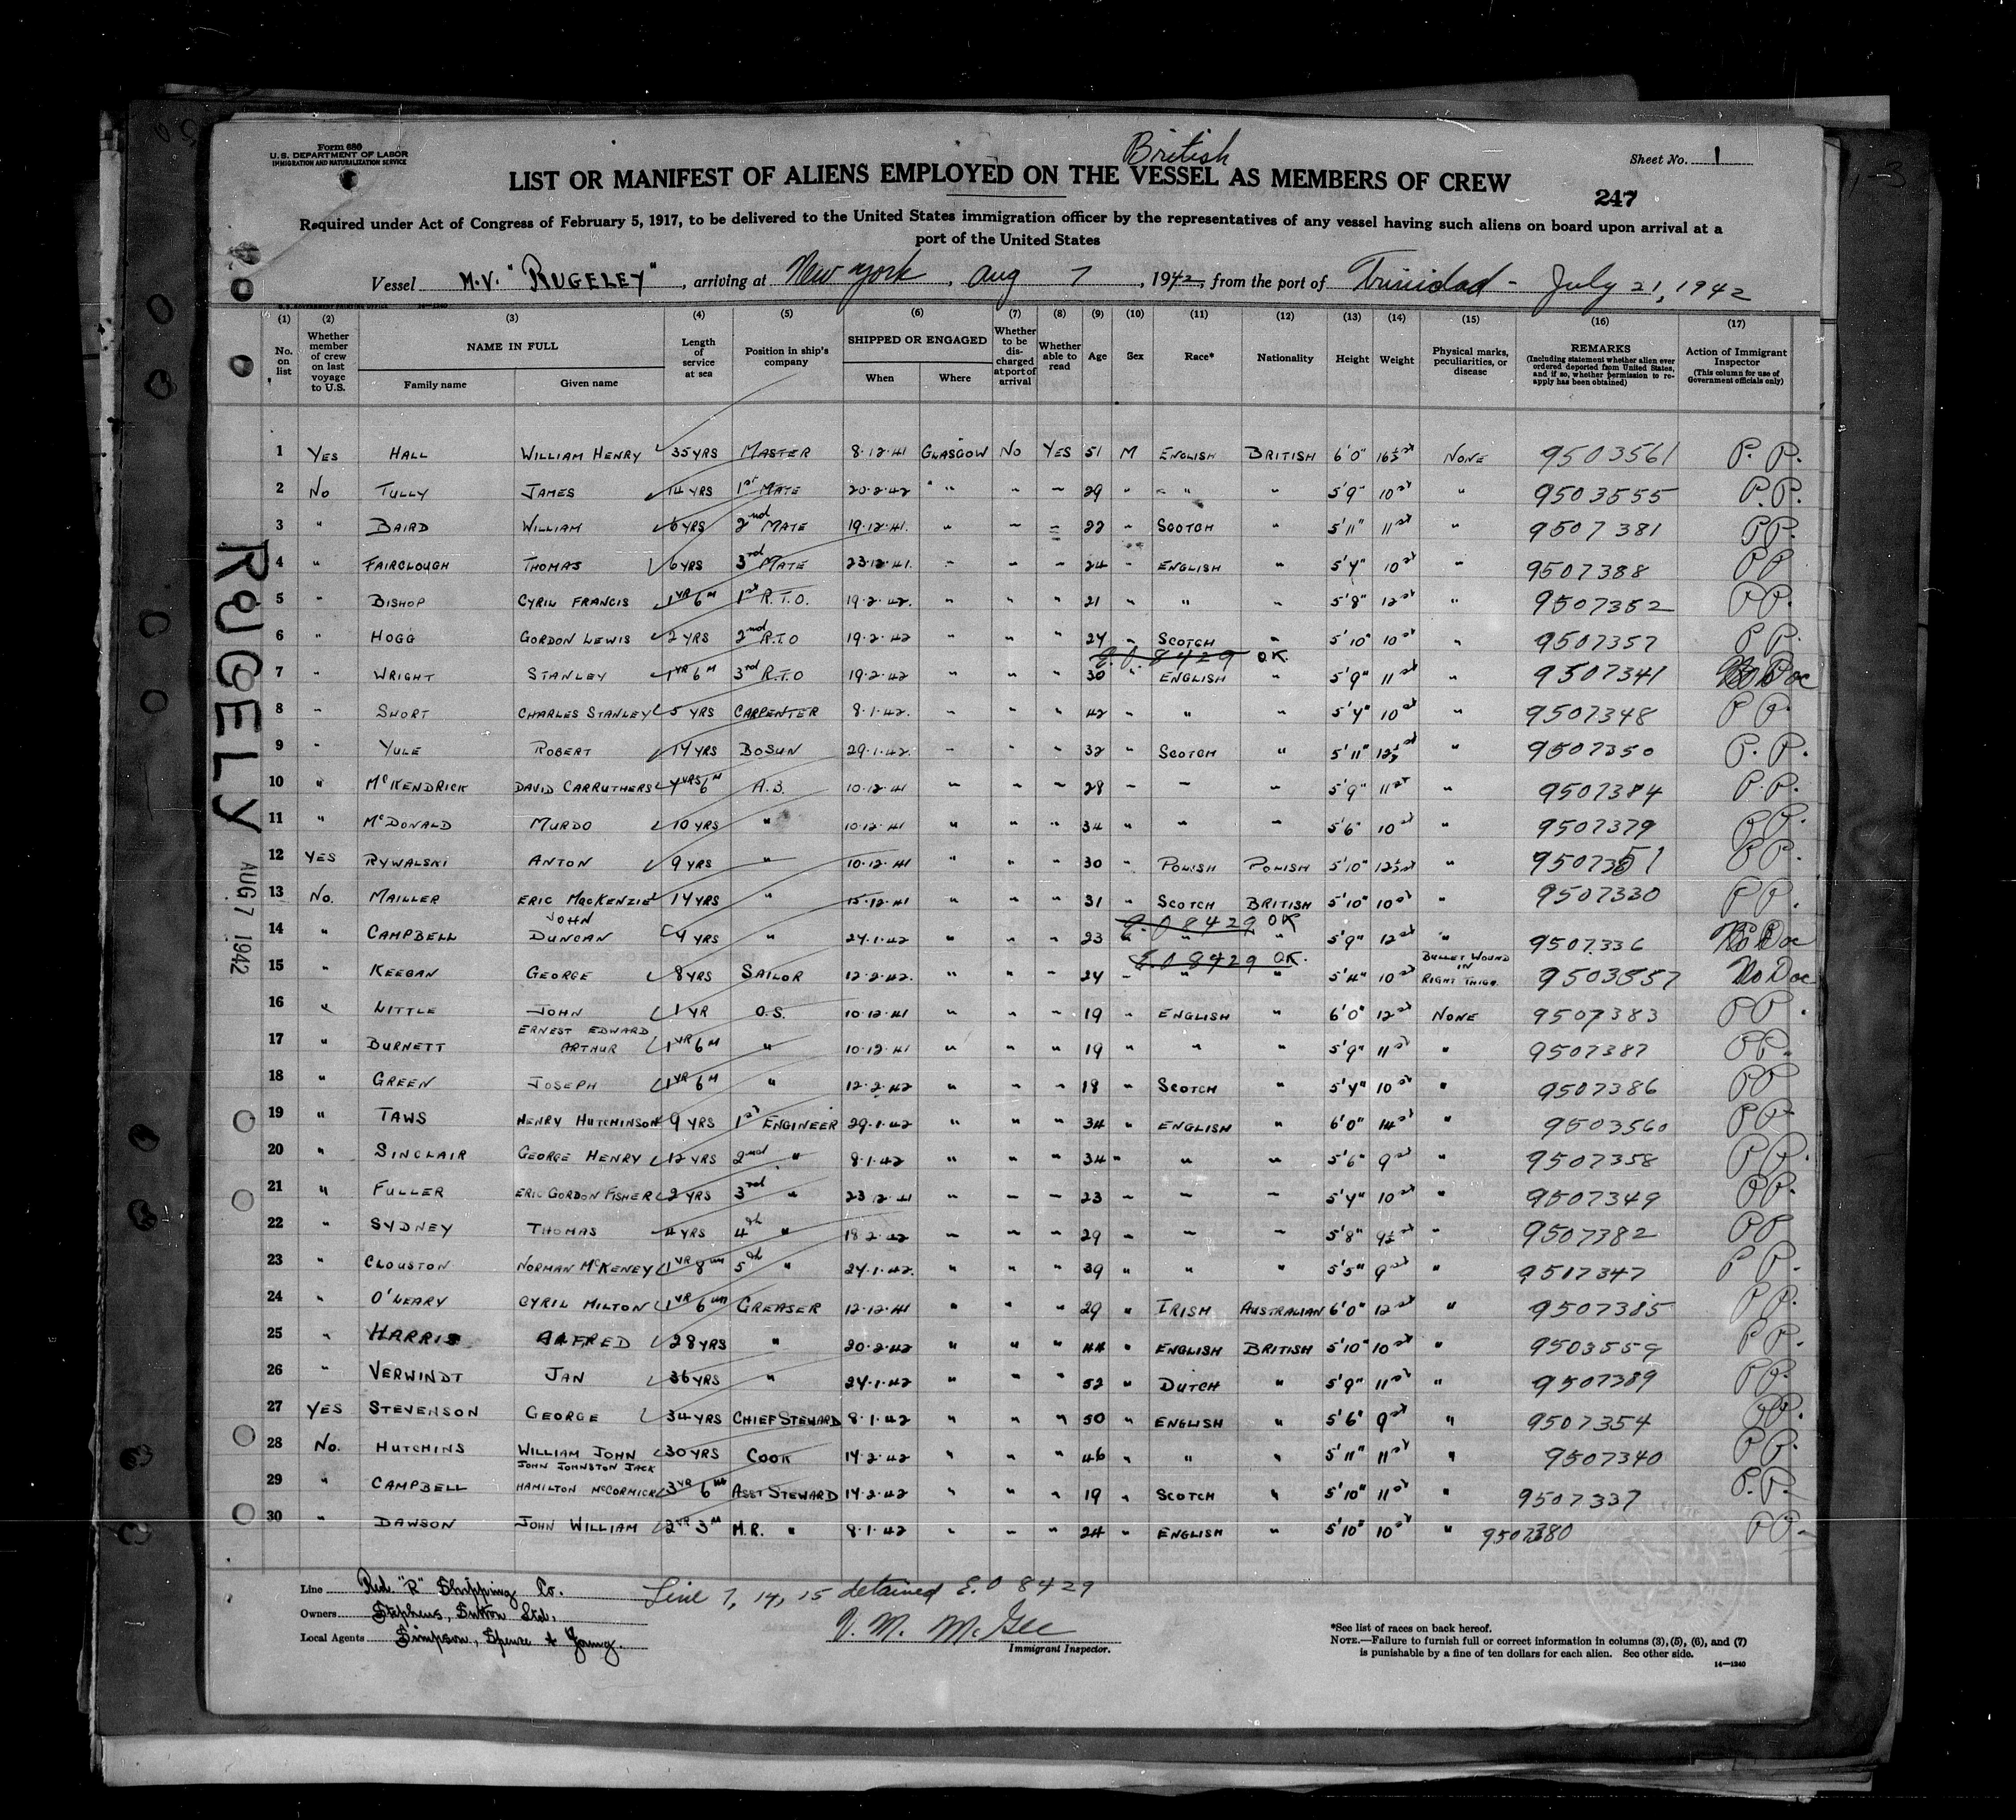 Form 680
U. S. DEPARTMENT OF LABOR
IMMIGRATION AND NATURALIZATION SERVICE
British
Sheet No. 1
LIST OR MANIFEST OF ALIENS EMPLOYED ON THE VESSEL AS MEMBERS OF CREW
247
Required under Act of Congress of February 5, 1917, to be delivered to the United States immigration officer by the representatives of any vessel having such aliens on board upon arrival at a
port of the United States
Vessel M.V. "RUGELEY", arriving at New York, Aug 7, 1942, from the port of Trinidad - July 21, 1942
(1) No. on list
(2) Whether member of crew on last voyage to U.S.
(3) NAME IN FULL Family name Given name
(4) Length of service at sea
(5) Position in ship's company
(6) SHIPPED OR ENGAGED When Where
(7) Whether to be discharged at port of arrival
(8) Whether able to read
(9) Age
(10) Sex
(11) Race*
(12) Nationality
(13) Height
(14) Weight
(15) Physical marks, peculiarities, or disease
(16) REMARKS (Including statement whether alien ever ordered deported from United States, and if so, whether permission to reapply has been obtained)
(17) Action of Immigrant Inspector (This column for use of Government officials only)
1 YES HALL WILLIAM HENRY 35 YRS MASTER 8.12.41 GLASGOW NO YES 51 M ENGLISH BRITISH 6'0" 16½ st NONE 9503561 P.P.
2 NO TULLY JAMES 14 YRS 1st MATE 20.2.42 " " " 29 " " " 5'9" 10 st " 9503555 P.P.
3 " BAIRD WILLIAM 6 YRS 2nd MATE 19.12.41. " " " 22 " SCOTCH " 5'11" 11 st " 9507381 PP.
4 " FAIRCLOUGH THOMAS 6 YRS 3rd MATE 23.12.41. " " " 24 " ENGLISH " 5'4" 10 st " 9507388 PP
5 " BISHOP CYRIL FRANCIS 1 YR 6 M 1st R.T.O. 19.2.42. " " " 21 " " " 5'8" 12 st " 9507352 PP.
6 " HOGG GORDON LEWIS 2 YRS 2nd R.T.O 19.2.42 " " " 24 " SCOTCH " 5'10" 10 st " 9507357 PP.
E.O. 8429 OK.
7 " WRIGHT STANLEY 1 YR 6 M 3rd R.T.O 19.2.42 " " " 30 " ENGLISH " 5'9" 11 st " 9507341 No Doc
8 " SHORT CHARLES STANLEY 5 YRS CARPENTER 8.1.42. " " " 42 " " " 5'4" 10 st " 9507348 PP.
9 " YULE ROBERT 14 YRS BOSUN 29.1.42. " " " 32 " SCOTCH " 5'11" 12½ st " 9507350 P.P.
10 " McKENDRICK DAVID CARRUTHERS 4 YRS 6 M A.B. 10.12.41 " " " 28 " " " 5'9" 11 st " 9507384 P.P.
11 " McDONALD MURDO 10 YRS " 10.12.41 " " " 34 " " " 5'6" 10 st " 9507379 PP.
12 YES RYWALSKI ANTON 9 YRS " 10.12.41 " " " 30 " POLISH POLISH 5'10" 12½ st " 9507351 PP.
13 NO. MAILLER ERIC MACKENZIE 14 YRS " 15.12.41 " " " 31 " SCOTCH BRITISH 5'10" 10 st " 9507330 PP.
E.O 8429 OK
14 " CAMPBELL JOHN DUNCAN 4 YRS " 24.1.42 " " " 23 " " " 5'9" 12 st " 9507336 No Doc
E.O 8429 OK.
15 " KEEGAN GEORGE 8 YRS SAILOR 12.2.42. " " " 24 " " " 5'4" 10 st BULLET WOUND IN RIGHT THIGH. 9503557 No Doc
16 " LITTLE JOHN 1 YR O.S. 10.12.41 " " " 19 " ENGLISH " 6'0" 12 st NONE 9507383 PP.
17 " BURNETT ERNEST EDWARD ARTHUR 1 YR 6 M " 10.12.41 " " " 19 " " " 5'9" 11 st " 9507387 PP.
18 " GREEN JOSEPH 1 YR 6 M " 12.2.42 " " " 18 " SCOTCH " 5'4" 10 st " 9507386 PP
19 " TAWS HENRY HUTCHINSON 9 YRS 1st ENGINEER 29.1.42 " " " 34 " ENGLISH " 6'0" 14 st " 9503560 PP
20 " SINCLAIR GEORGE HENRY 12 YRS 2nd " 8.1.42 " " " 34 " " " 5'6" 9 st " 9507358 PP.
21 " FULLER ERIC GORDON FISHER 2 YRS 3rd " 23 12 41 " " " 23 " " " 5'4" 10 st " 9507349 PP.
22 " SYDNEY THOMAS 4 YRS 4th " 18 2.42 " " " 29 " " " 5'8" 9½ st " 9507382 PP
23 " CLOUSTON NORMAN McKENEY 1 YR 8 m 5th " 24.1.42. " " " 39 " " " 5'5" 9 st " 9517347 PP.
24 " O'LEARY CYRIL MILTON 1 YR 6 m GREASER 12.12.41 " " " 29 " IRISH AUSTRALIAN 6'0" 12 st " 9507385 PP.
25 " HARRIS ALFRED 28 YRS " 20.2.42 " " " 44 " ENGLISH BRITISH 5'10" 10 st " 9503559 PP.
26 " VERWINDT JAN 36 YRS " 24.1.42 " " " 52 " DUTCH " 5'9" 11 st " 9507389 PP.
27 YES STEVENSON GEORGE 34 YRS CHIEF STEWARD 8.1.42 " " " 50 " ENGLISH " 5'6" 9 st " 9507354 PP.
28 NO. HUTCHINS WILLIAM JOHN 30 YRS COOK 14.2.42 " " " 46 " " " 5'11" 11 st " 9507340 PP.
29 " CAMPBELL JOHN JOHNSTON JACK HAMILTON McCORMICK 3 YR 6 M ASST STEWARD 14.2.42 " " " 19 " SCOTCH " 5'10" 11 st " 9507337 P.P.
30 " DAWSON JOHN WILLIAM 2 YR 3 M M.R. " 8.1.42 " " " 24 " ENGLISH " 5'10" 10 st " 9507380 PP.
RUGELY
AUG 7 1942
Line Red "R" Shipping Co.
Owners Stephens, Sutton Ltd.
Local Agents Simpson, Spence & Young.
Line 7, 14, 15 detained E.O 8429
V. M. McGee
Immigrant Inspector.
*See list of races on back hereof.
NOTE.—Failure to furnish full or correct information in columns (3), (5), (6), and (7)
is punishable by a fine of ten dollars for each alien. See other side.
14—1240